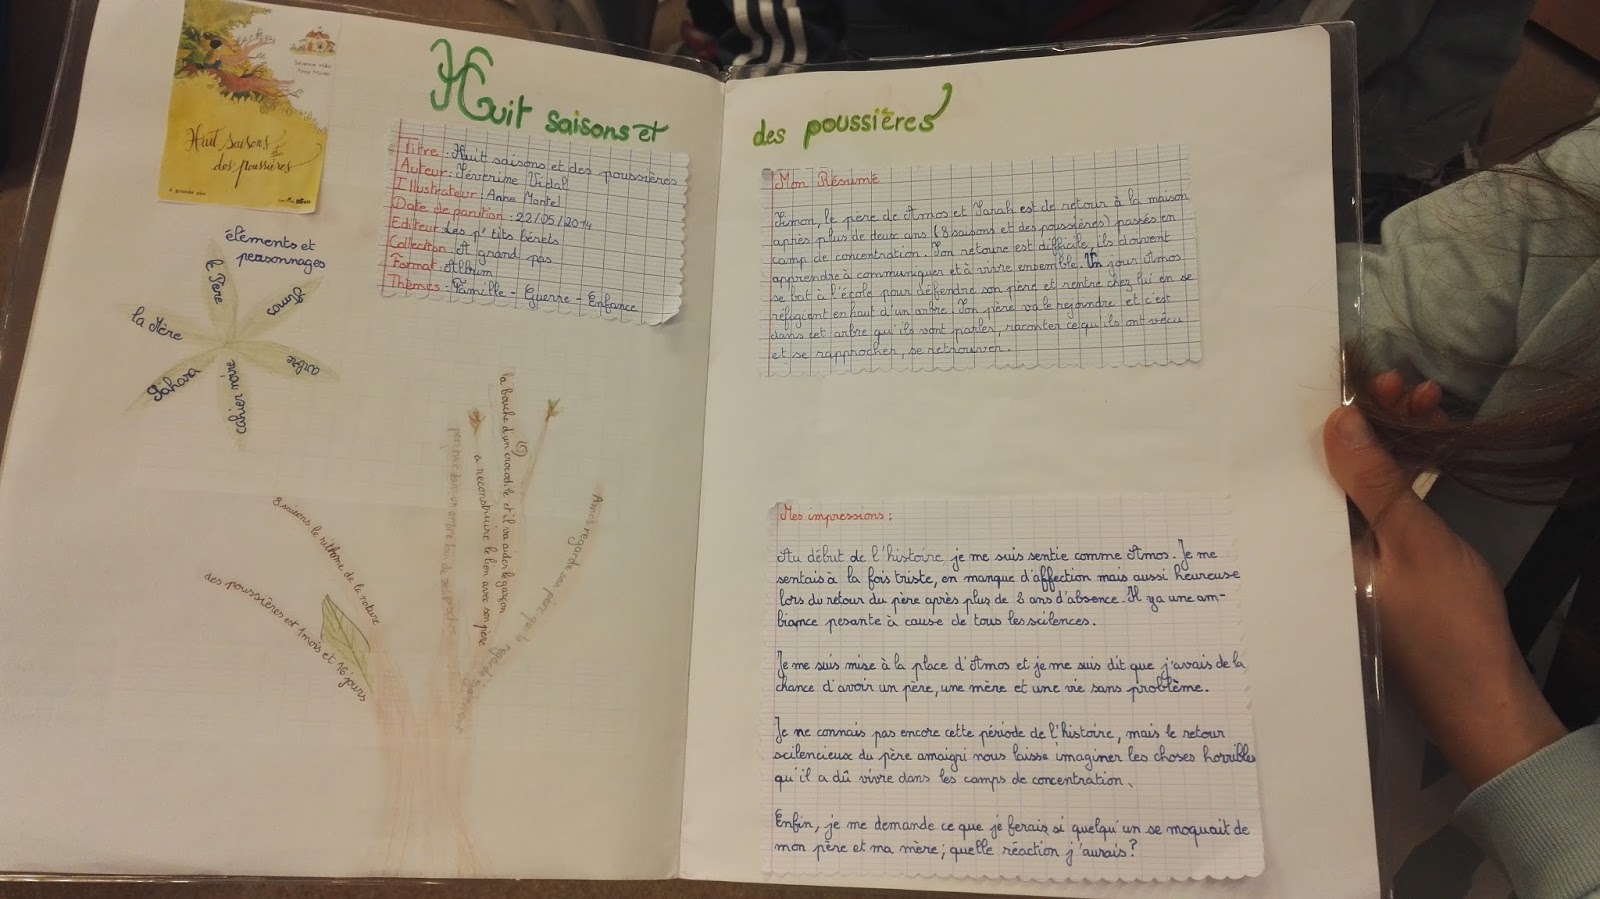 Séverine Vidal
Anne Montel
Huit saisons et
des poussières
Huit saisons et
des poussières
Titre : Huit saisons et des poussières
Auteur : Séverine Vidal
Illustrateur : Anne Montel
Date de parution : 22/05/2014
Editeur : Les p'tits bérets
Collection : A grand pas
Format : Album
Thèmes : Famille - Guerre - Enfance
éléments et
personnages
le Père
Amos
la Mère
arbre
Sahara
cahier noir
8 saisons le rithme de la nature
des poussières est 1 mois et 16 jours
perchée dans un arbre
a reconstruire le lien avec son père
la bouche d'un crocodile et il va aider le garçon
Amos regarde son père qui le regarde
Mon Résumé
Simon, le père de Amos et Sarah est de retour à la maison
après plus de deux ans (8 saisons et des poussières) passés en
camp de concentration. Son retoure est difficile, ils doivent
apprendre à communiquer et à vivre ensemble. Un jour Amos
se bat à l'école pour défendre son père et rentre chez lui en se
réfugient en haut d'un arbre. Son père va le rejoindre et c'est
dans cet arbre qu'ils vont parler, raconter ce qu'ils ont vécu
et se rapprocher, se retrouver.
Mes impressions :
Au début de l'histoire je me suis sentie comme Amos. Je me
sentais à la fois triste, en manque d'affection mais aussi heureuse
lors du retour du père après plus de 2 ans d'absence. Il y a une am-
biance pesante à cause de tous les scilences.
Je me suis mise à la place d'Amos et je me suis dit que j'avais de la
chance d'avoir un père, une mère et une vie sans problème.
Je ne connais pas encore cette période de l'histoire, mais le retour
scilencieux du père amaigri nous laisse imaginer les choses horribles
qu'il a dû vivre dans les camps de concentration.
Enfin, je me demande ce que je ferais si quelqu'un se moquait de
mon père et ma mère ; quelle réaction j'aurais ?